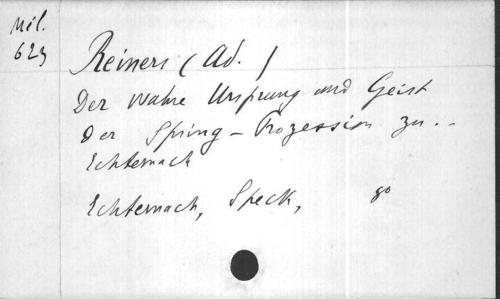 Mil.
623
Reiners (Ad.)
Der wahre Ursprung und Geist
der Spring-Prozession zu..
Echternach
Echternach, Speck, 8o